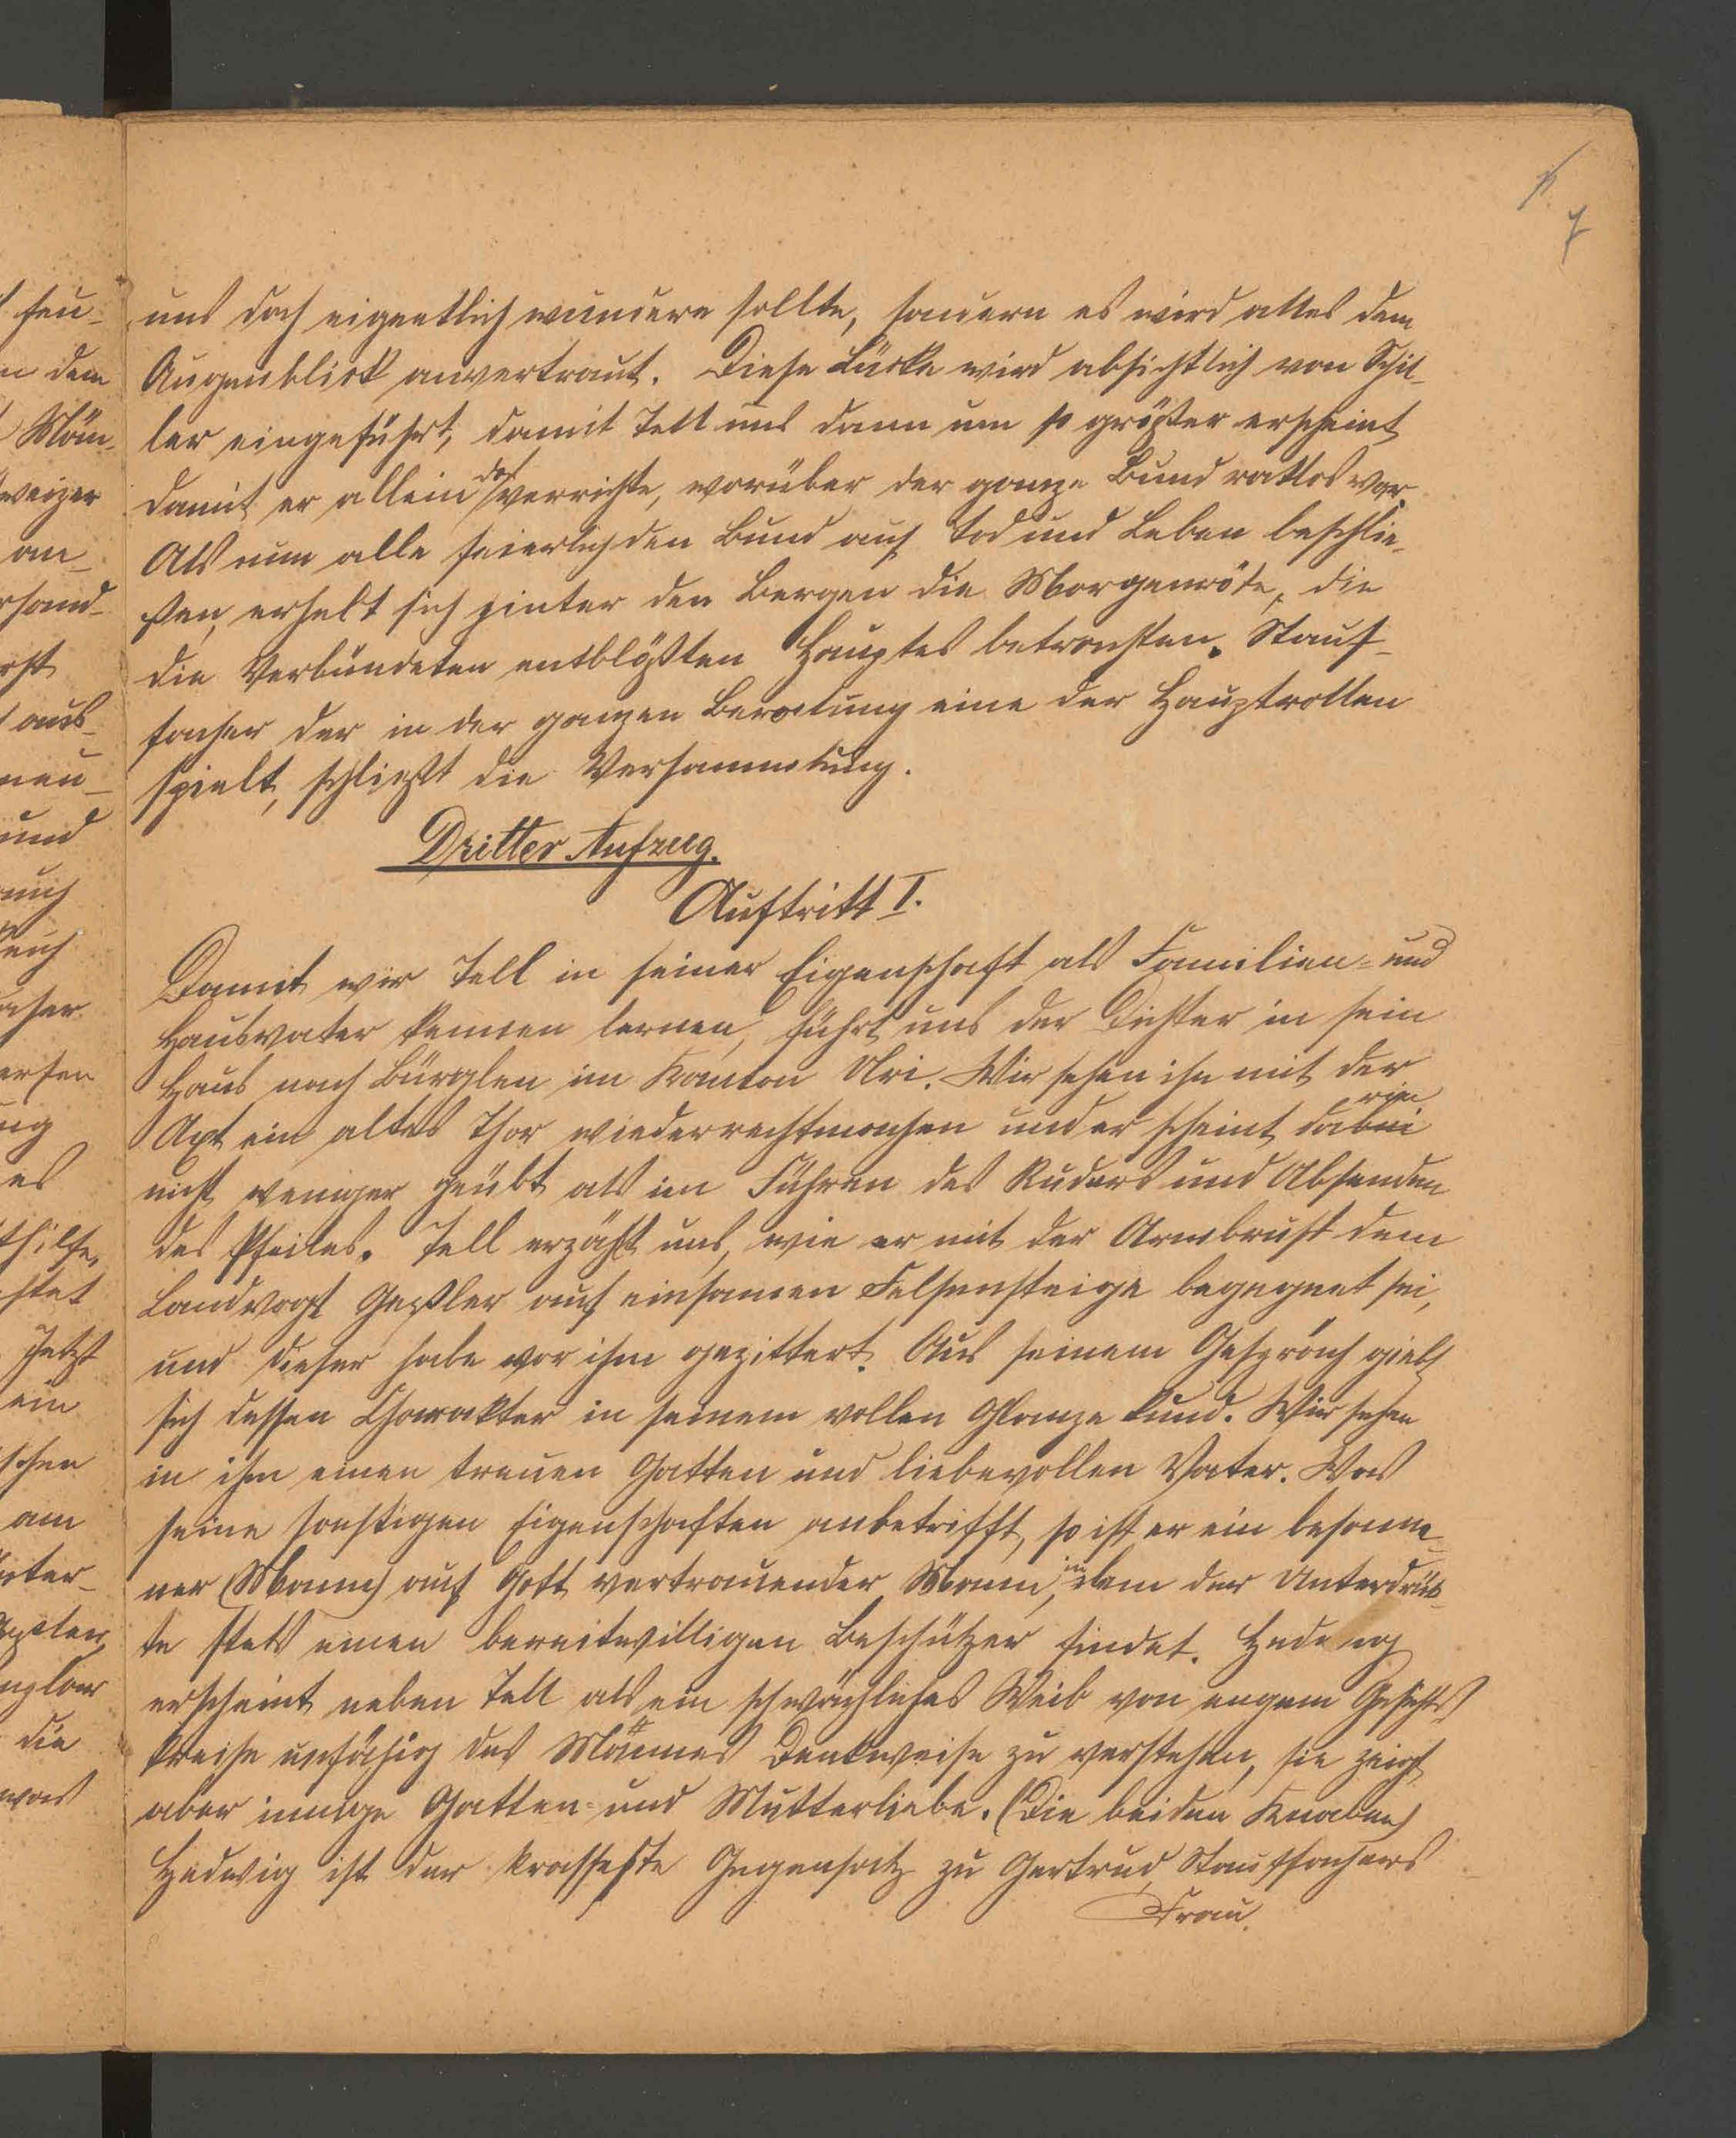 uns doch eigentlich wundern sollte, sondern es wird alles dem
Augenblick anvertraut. Diese Lücke wird absichtlich von Schil-
ler eingeführt, damit Tell uns dann um so größer erscheint
damit er allein das verrichte, worüber der ganze Bund ratlos war.
Als nun alle feierlich den Bund auf Tod und Leben beschlie-
ßen, erhebt sich hinter den Bergen die Morgenröte, die
die Verbündeten entblößten Hauptes betrachten. Stauf-
facher der in der ganzen Beratung eine der Hauptrollen
spielt, schließt die Versammlung.
Dritter Aufzug.
Auftritt I.
Damit wir Tell in seiner Eigenschaft als Familien- und
Hausvater kennen lernen, führt uns der Dichter in sein
Haus nach Bürglen im Kanton Uri. Wir sehen ihn mit der
Axt ein altes Thor wiederrechtmachen und er scheint dabei rin
nicht weniger geübt als im Führen des Ruders und Absenden
des Pfeiles. Tell erzählt uns, wie er mit der Armbrust dem
Landvogt Geßler auf einsamen Felsensteige begegnet sei,
und dieser habe vor ihm gezittert. Aus seinem Gespräch giebt
sich dessen Charakter in seinem vollen Glanze kund. Wir sehen
in ihm einen treuen Gatten und liebevollen Vater. Was
seine sonstigen Eigenschaften anbetrifft, so ist er ein besonne-
ner (Mann) auf Gott vertrauender Mann, in dem der Unterdrück-
te stets einen bereitwilligen Beschützer findet. Hedwig
erscheint neben Tell als ein schwächliches Weib von engem Gesichts-
kreise unfähig des Mannes Denkweise zu verstehen, sie zeigt
aber innige Gatten- und Mutterliebe. (Die beiden Knaben)
Hedwig ist der krasseste Gegensatz zu Gertrud, Stauffachers
Frau.